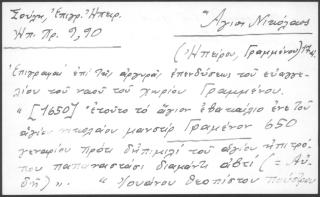 Σούλη, Ἐπιγρ. Ἠπειρ.
Ἠπ. Χρ. 9, 90
Ἅγιος Νικόλαος
(Ἠπείρου, Γραμμένου)
Ἐπιγραφαὶ ἐπὶ τῆς ἀργυρᾶς ἐπενδύσεως τοῦ εὐαγγε-
λίου τοῦ ναοῦ τοῦ χωρίου Γραμμένου.
"[1650] ἐτοῦτο τὸ ἅγιον ἐβακιάλιο ἐνε τοῦ
ἁγίου νικολαίου μαντσίρ Γραμένον 650
γεναρίου πρότι δηπιμιλί τοῦ ἁγίου ηπιτρό-
που παπαναστάσι διαμάντι ἀβτί (= Αὐ-
δῆ)". "Ἰουάνου θεοπίστου